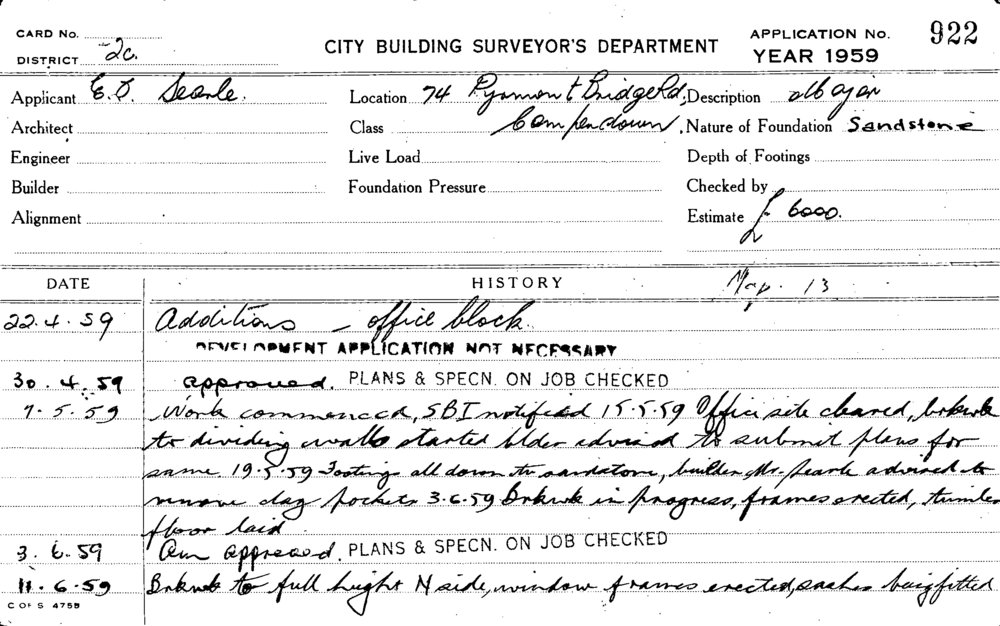 CARD No.
DISTRICT 2c.
CITY BUILDING SURVEYOR'S DEPARTMENT
APPLICATION No. 922
YEAR 1959
Applicant E. J. Searle. Location 74 Pyrmont Bridge Rd, Description
Architect Class Camperdown, Nature of Foundation Sandstone
Engineer Live Load Depth of Footings
Builder Foundation Pressure Checked by
Alignment Estimate £ 6000.
DATE HISTORY Map. 13
22.4.59 Additions - office block.
DEVELOPMENT APPLICATION NOT NECESSARY
30.4.59 approved. PLANS & SPECN. ON JOB CHECKED
7.5.59 Work commenced, SBI notified 15.5.59 Office site cleared, brkwk
to dividing walls started blder advised to submit plans for
same. 19.5.59 Footings all down to sandstone, builder Mr. Searle advised to
remove clay pockets 3.6.59 Brkwk in progress, frames erected, timber
floor laid
3.6.59 Am approved. PLANS & SPECN. ON JOB CHECKED
11.6.59 Brkwk to full height N side, window frames erected, sashes being fitted
C OF S 4755